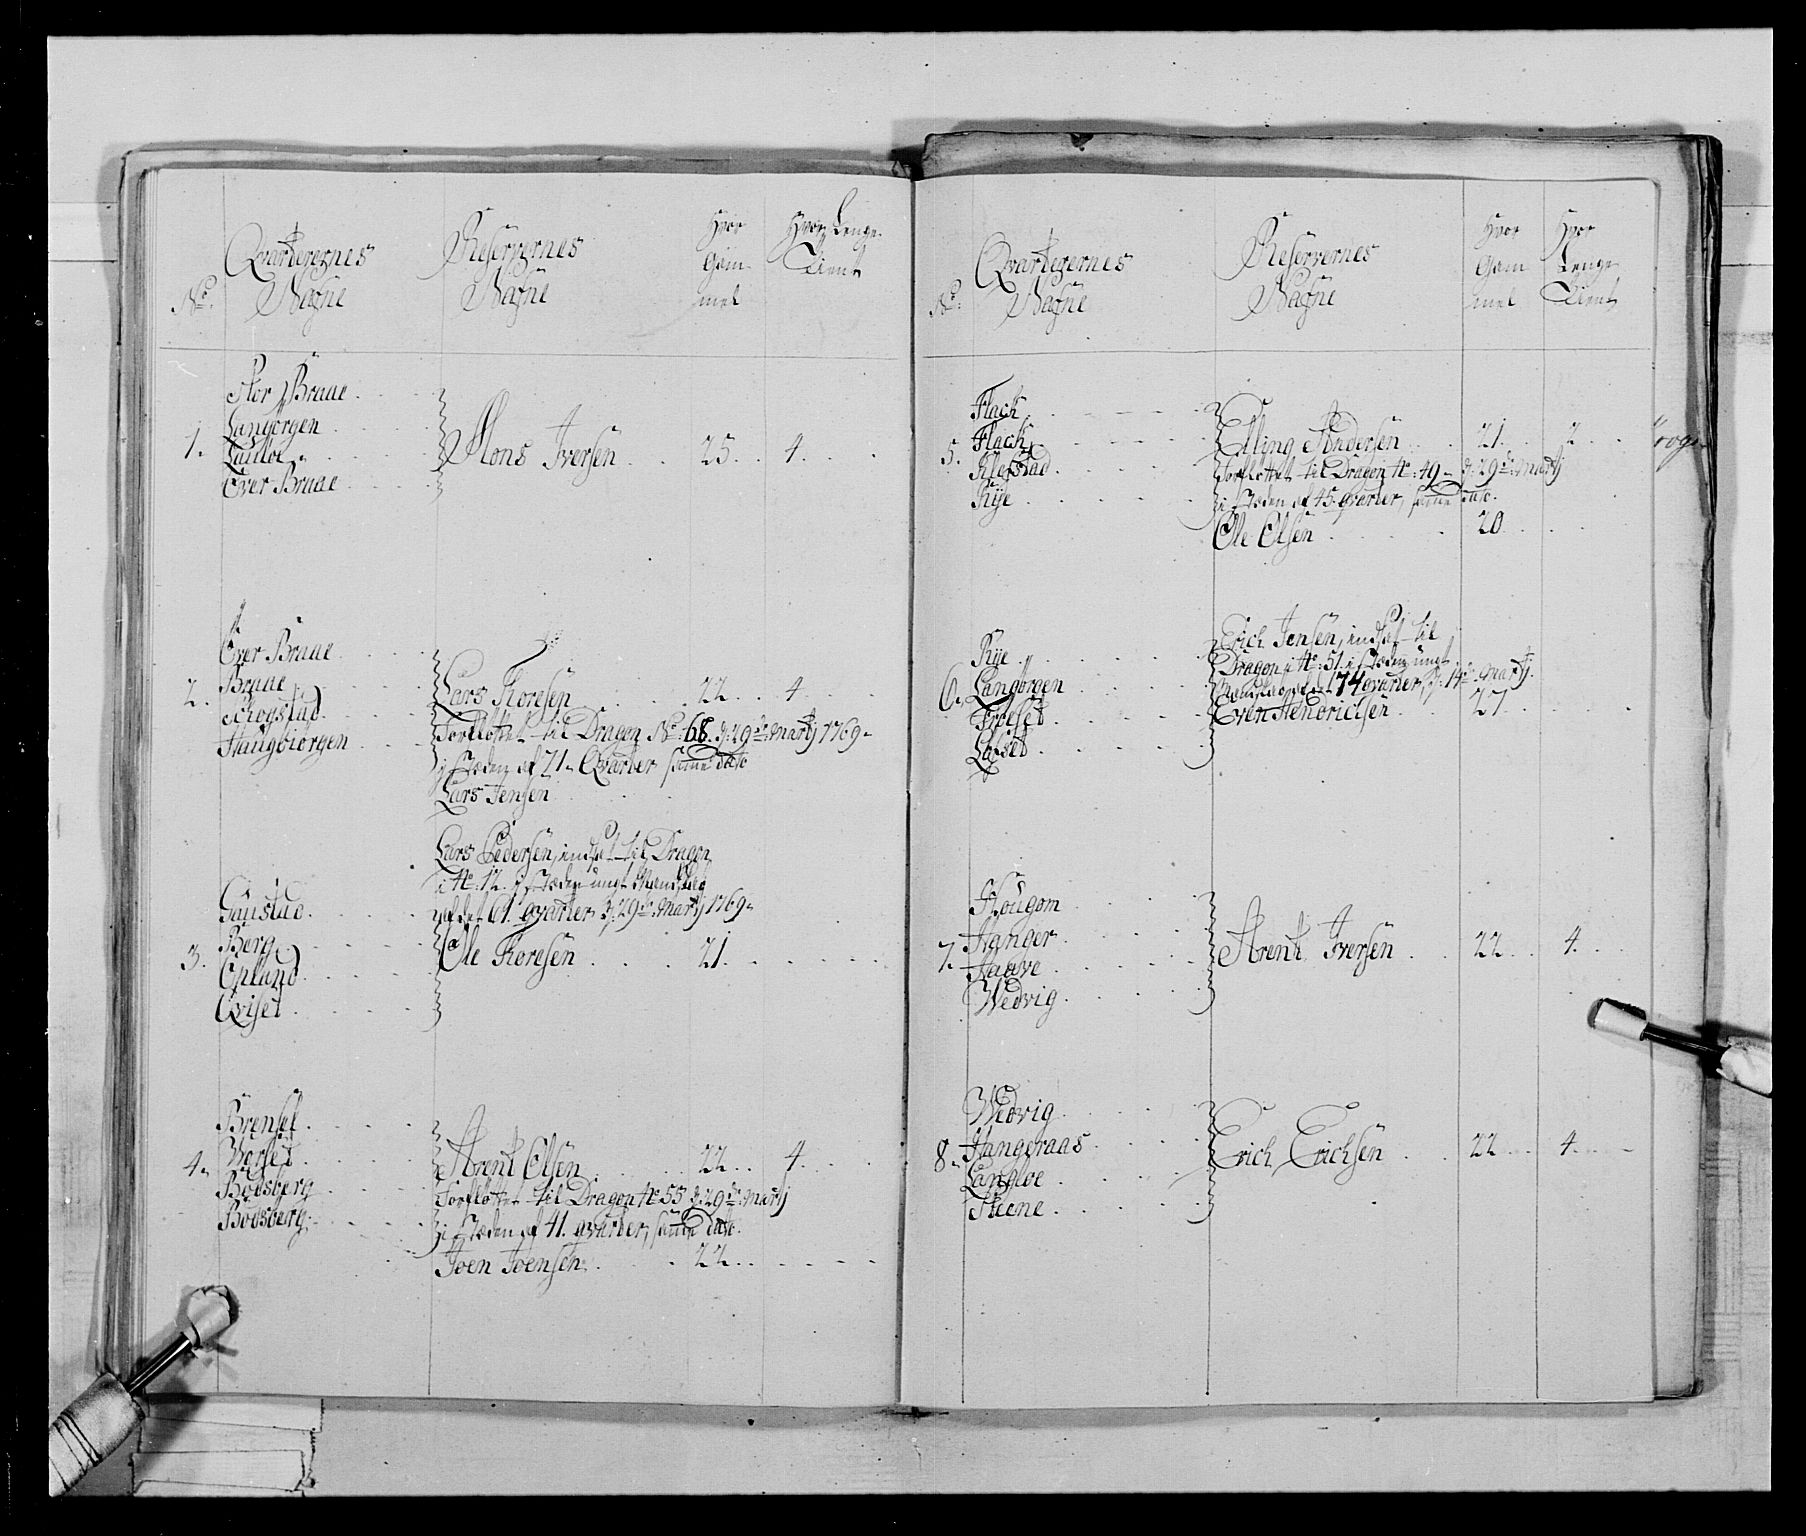 No.
Qvarterernes
Nafne
Reservernes
Nafne
Hvor
Gam
mel
Hvor Lenge
Tient
1.
Stor Braae
Langörgen
Lauloe
Over Braae
Mons Iversen 25 4
2.
Over Braae
Braae
Schogstad
Haugbiörgen
Lars Toresen 22 4
Forflöttet til Dragon No. 68. d: 29de Martij 1769
i stæden af 71 Qvarter samme dato
Lars Jensen
3.
Gaustad
Berg
Opland
Qviset
Lars Pedersen, indsat til Dragon
i No: 12. i stæden ungt Mandskab
af det 61 qvarter d: 29de Martij 1769
Ole Toresen 21
4.
Brenset
Worset
Bodsberg
Bodsberg
Arent Olsen 22 4
Forflöttet til Dragon No 55 d: 29de Martij
i stæden af 41. qvarter, samme dato.
Joen Joensen 22
No.
Qvarterernes
Nafne
Reservernes
Nafne
Hvor
Gam
mel
Hvor
Lenge
Tient
5.
Flack
Flack
Klefstad
Rye
Elling Andersen 21 2
Forflöttet til Dragon No: 49 d: 29de Martij
i stæden af 45 qvarter, samme dato.
Ole Olsen 20
6.
Rye
Langörgen
Fröeset
Löfset
Erich Jensen, indsat til
Dragon i No: 51. i stæden ungt
Mandskab af det 74 qvarter, d: 14de Martij
Even Hendrichsen 27
7.
Hougom
Hanger
Haave
Wedvig
Arent Iversen 22 4
8.
Wedvig
Hangeraas
Langloe
Steene
Erich Erichsen 22 4